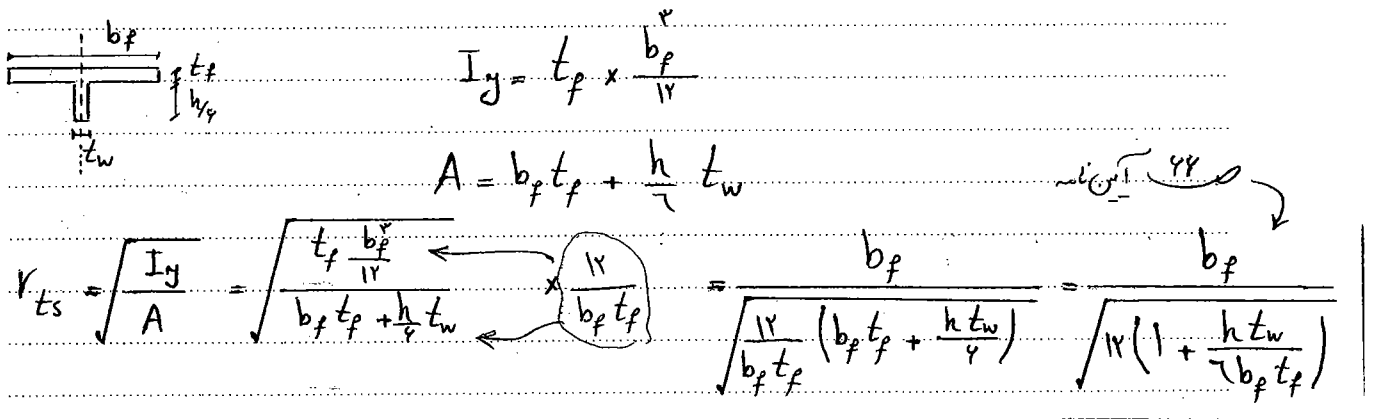 b_f
t_f
h/۶
t_w
I_y = t_f × b_f^۳/۱۲
A = b_f t_f + h/6 t_w
ص ۶۶ آیین‌نامه
r_ts = √(I_y/A) = √((t_f b_f^۳/۱۲)/(b_f t_f + h/۶ t_w)) × ۱۲/(b_f t_f) = b_f/√(۱۲/(b_f t_f) (b_f t_f + h t_w/۶)) = b_f/√(۱۲(۱ + h t_w/(6 b_f t_f)))